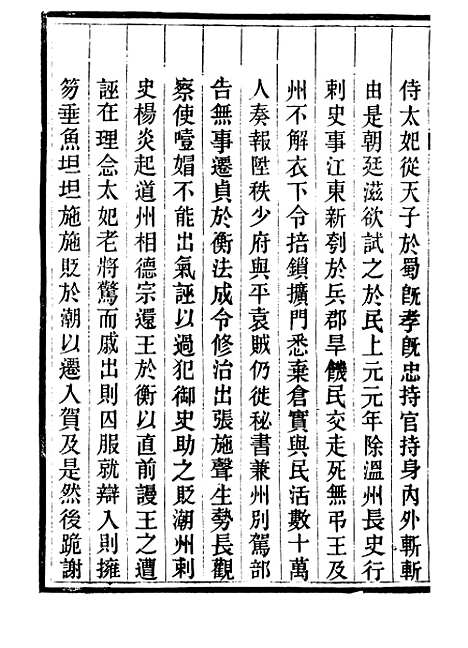 侍太妃從天子於蜀旣孝旣忠持官持身內外斬斬
由是朝廷滋欲試之於民上元元年除溫州長史行
刺史事江東新刳於兵郡旱饑民交走死無弔王及
州不解衣下令掊鎖擴門悉棄倉實與民活數十萬
人奏報陞秩少府與平袁賊仍徙秘書兼州別駕部
告無事遷貞於衡法成令修治出張施聲生勢長觀
察使噎媢不能出氣誣以過犯御史助之貶潮州刺
史楊炎起道州相德宗還王於衡以直前謾王之遭
誣在理念太妃老將驚而戚出則囚服就辯入則擁
笏垂魚坦坦施施貶於潮以遷入賀及是然後跪謝